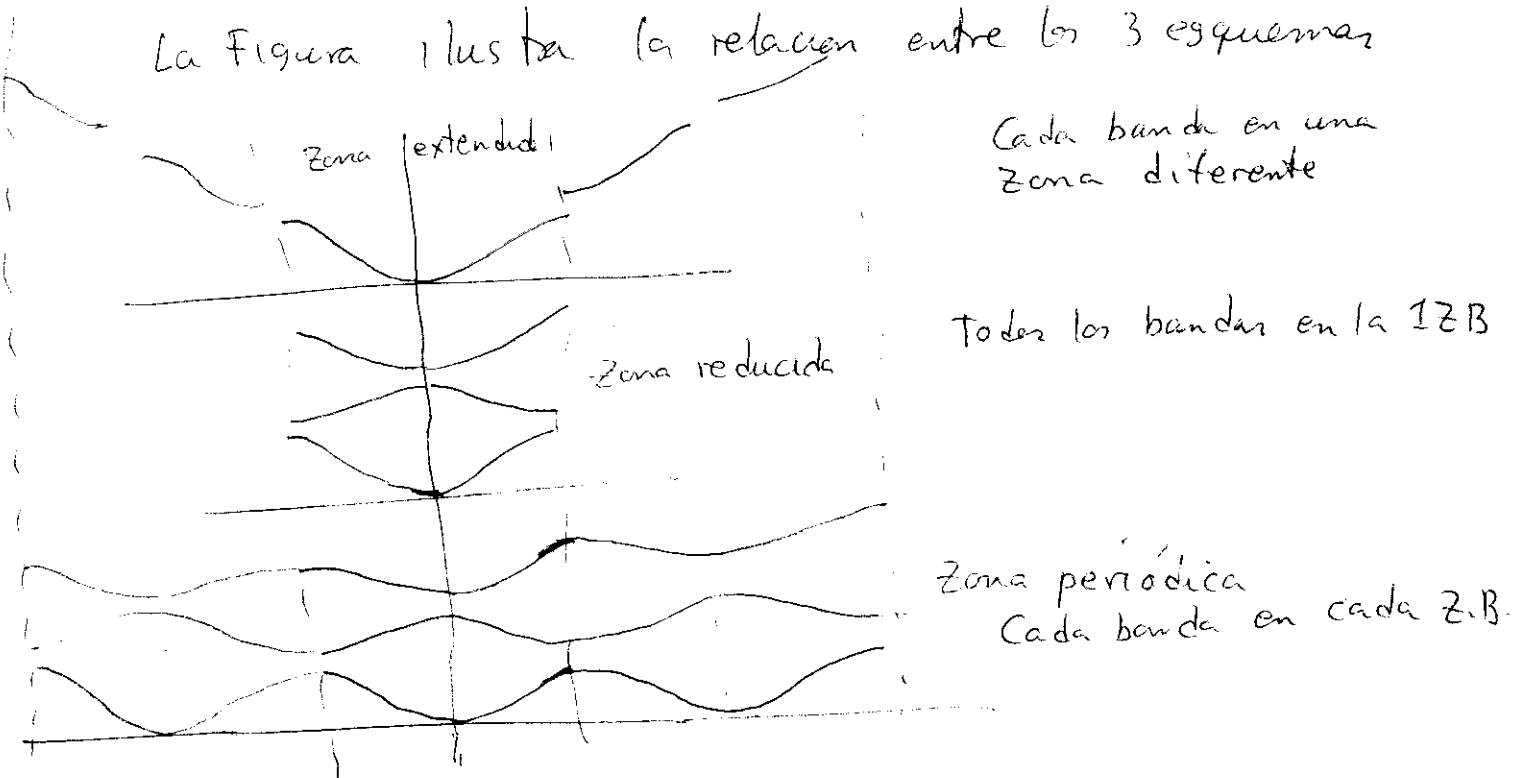 La Figura ilustra la relacion entre los 3 esquemas
Zona extendida
Cada banda en una
Zona diferente
Todas las bandas en la 1ZB
Zona reducida
Zona periódica
Cada banda en cada Z.B.